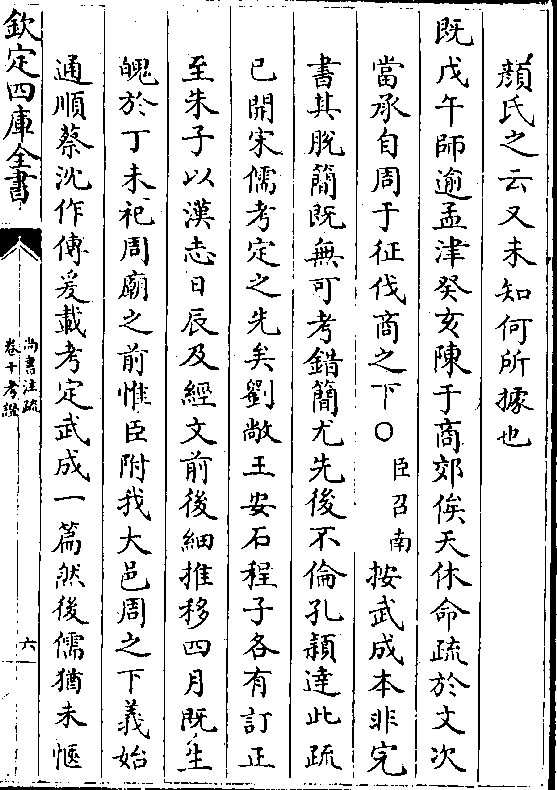 顏氏之云又未知何所據也
既戊午師逾孟津癸亥陳于商郊俟天休命疏於文次
當承自周于征伐商之下○臣召南按武成本非完
書其脫簡既無可考錯簡尤先後不倫孔穎達此疏
已開宋儒考定之先矣劉敞王安石程子各有訂正
至朱子以漢志日辰及經文前後細推移四月既生
魄於丁未祀周廟之前惟臣附我大邑周之下義始
通順蔡沈作傳爰載考定武成一篇然後儒猶未愜
欽定四庫全書
尚書注疏
卷十考證
六